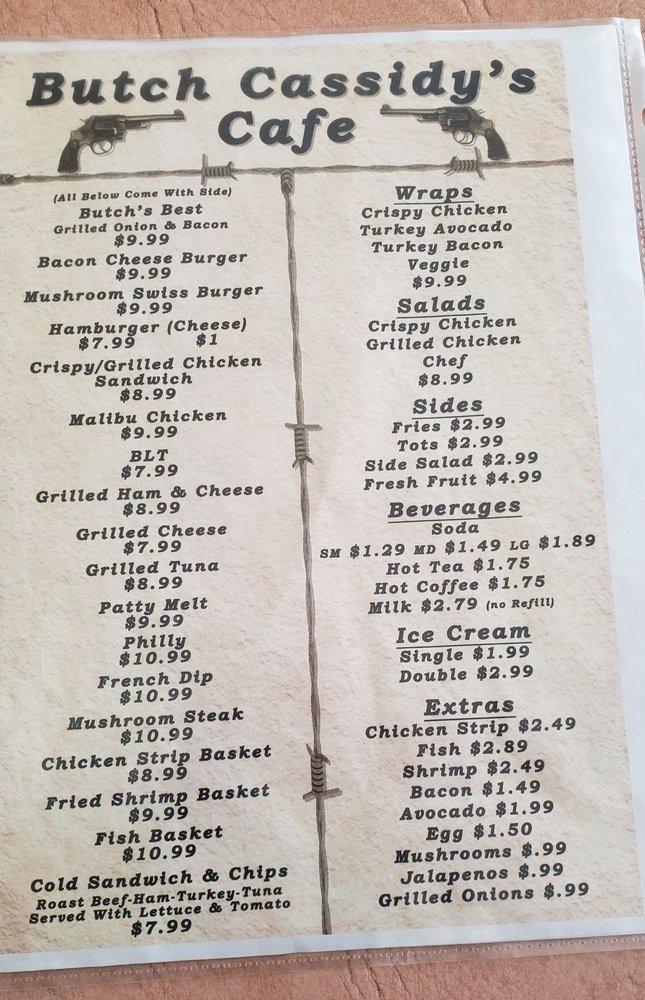 Butch Cassidy's
Cafe
(All Below Come With Side)
Butch's Best
Grilled Onion & Bacon
$9.99
Bacon Cheese Burger
$9.99
Mushroom Swiss Burger
$9.99
Hamburger (Cheese)
$7.99 $1
Crispy/Grilled Chicken
Sandwich
$8.99
Malibu Chicken
$9.99
BLT
$7.99
Grilled Ham & Cheese
$8.99
Grilled Cheese
$7.99
Grilled Tuna
$8.99
Patty Melt
$9.99
Philly
$10.99
French Dip
$10.99
Mushroom Steak
$10.99
Chicken Strip Basket
$8.99
Fried Shrimp Basket
$9.99
Fish Basket
$10.99
Cold Sandwich & Chips
Roast Beef-Ham-Turkey-Tuna
Served With Lettuce & Tomato
$7.99
Wraps
Crispy Chicken
Turkey Avocado
Turkey Bacon
Veggie
$9.99
Salads
Crispy Chicken
Grilled Chicken
Chef
$8.99
Sides
Fries $2.99
Tots $2.99
Side Salad $2.99
Fresh Fruit $4.99
Beverages
Soda
SM $1.29 MD $1.49 LG $1.89
Hot Tea $1.75
Hot Coffee $1.75
Milk $2.79 (no Refill)
Ice Cream
Single $1.99
Double $2.99
Extras
Chicken Strip $2.49
Fish $2.89
Shrimp $2.49
Bacon $1.49
Avocado $1.99
Egg $1.50
Mushrooms $.99
Jalapenos $.99
Grilled Onions $.99